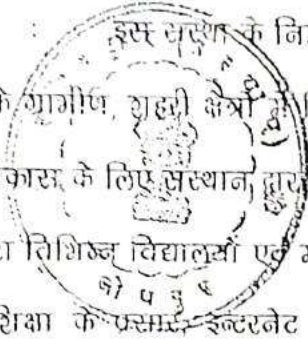 : इस संस्था के नि
के ग्रामीण, शहरी क्षेत्रों में
कास के लिए संस्थान द्वारा
रा विभिन्न विद्यालयों एवं म
शिक्षा के प्रसार इन्टरनेट